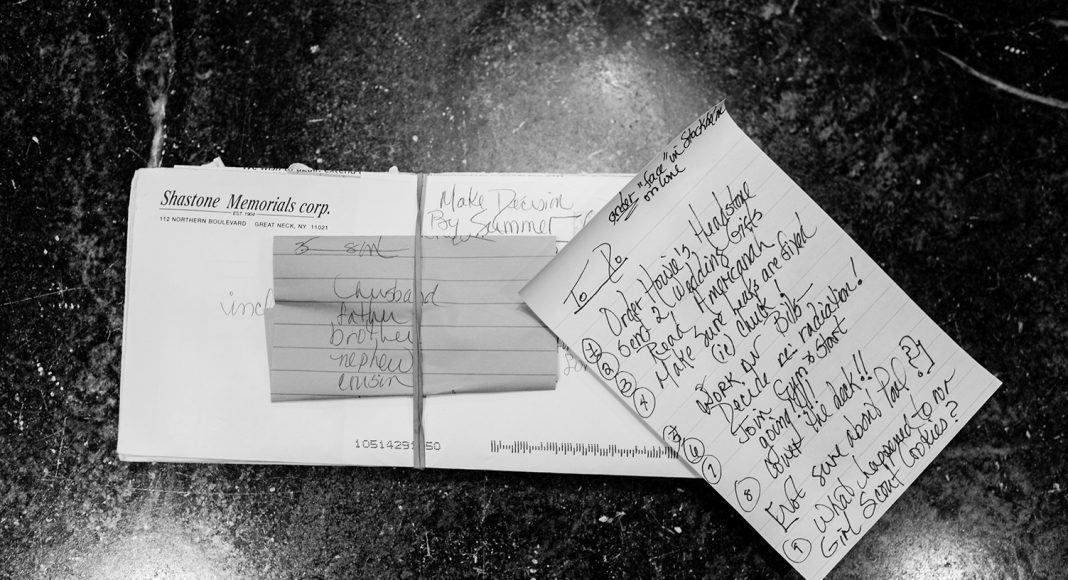 Shastone Memorials corp.
EST 1904
112 NORTHERN BOULEVARD GREAT NECK, NY 11021
Make Decision
By Summer
husband
father
brother
nephew
cousin
order "face" in Stockholm
on line
To Do
① Order Howie's Headstone
② Send 2 Wedding Gifts
③ Read Americanah
④ Make Sure leaks are fixed
(ie) check!
⑤ Work on Bills
⑥ Decide re: radiation!
⑦ Join Gym & Start
going!!!!
⑧ the deck!!
[Not sure about Pool?]
⑨ What happened to our
Girl Scout Cookies?